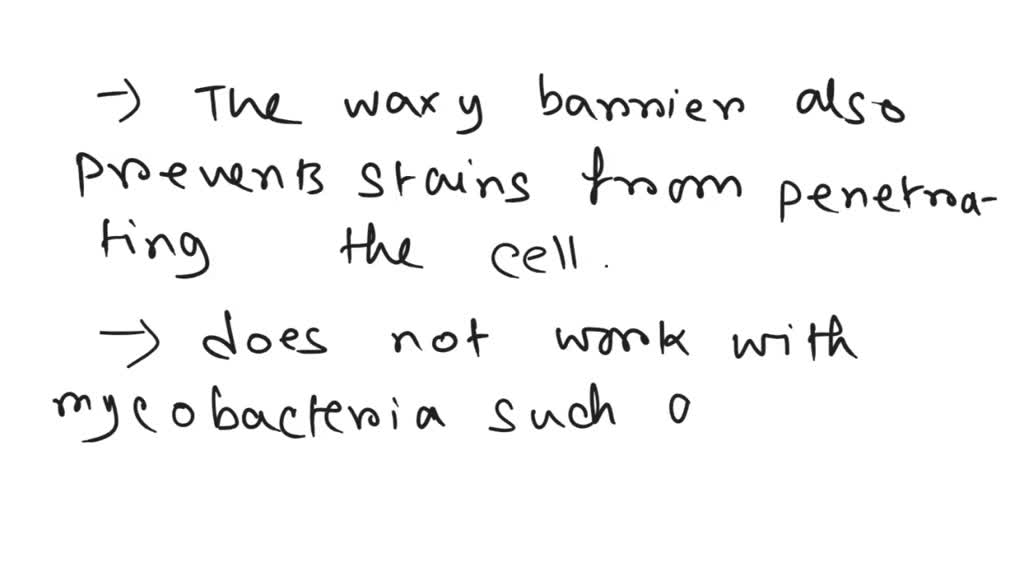 → The waxy barrier also
prevents stains from penetra-
ting the cell.
→ does not work with
mycobacteria such a